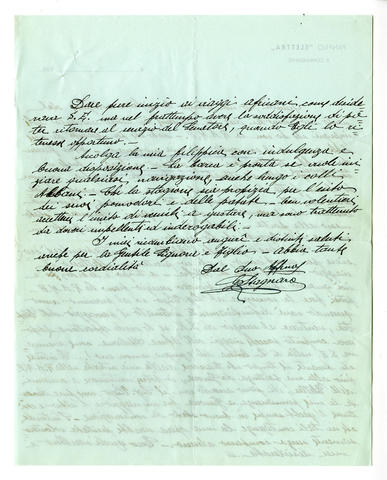 Dare pure inizio ai viaggi africani, come deside
rava S.E. ma nel frattempo avere la soddisfazione di po=
ter ritornare al servizio del Senatore, quando Egli lo ri=
tenesse opportuno. -
Accolga la mia filippica con indulgenza e
buona disposizione. - La barca è pronta se vuole ini
ziare qualsiasi navigazione, anche lungo i colli
Albani. - Che la stagione sia propizia per l'esito
dei suoi pomodori e delle patate - ben volentieri
accetterei l'invito di venirli a gustare, ma sono trattenuto
da doveri impellenti ed inderogabili.
I miei ricambiano auguri e distinti saluti,
anche per la Gentile Signora e figlio - abbia tante
buone cordialità
Dal Suo Affmo
GStagnaro